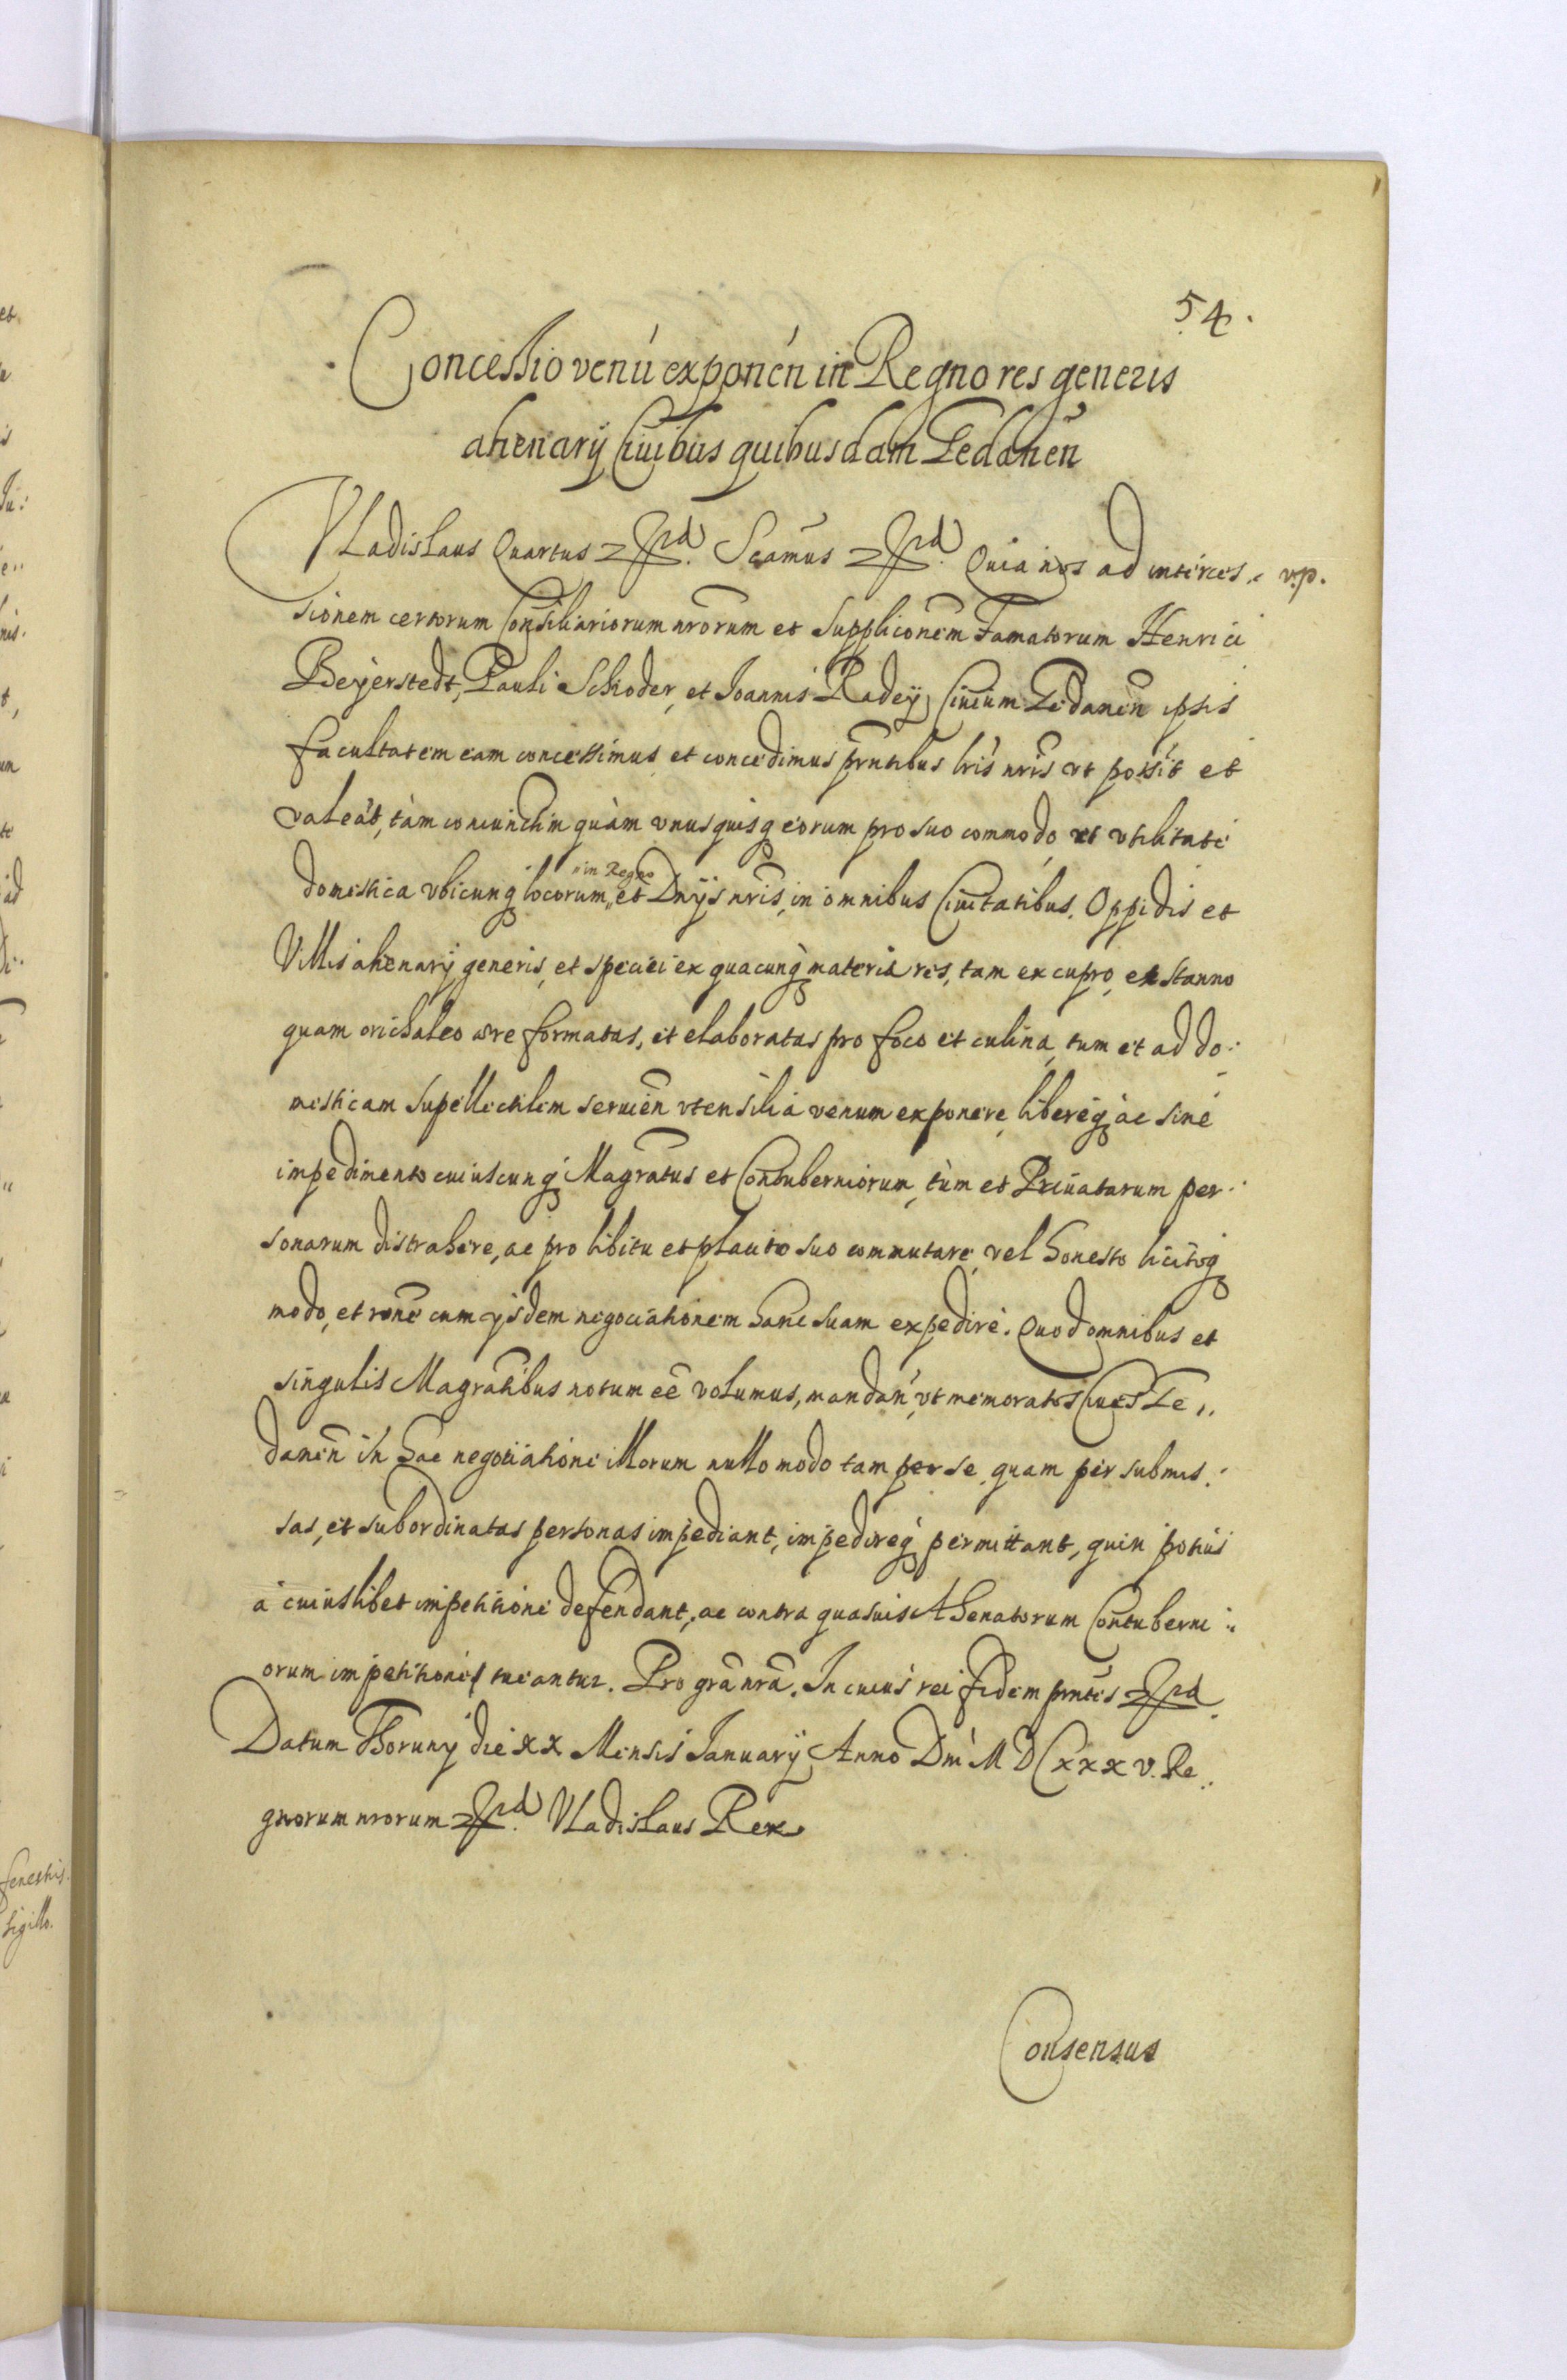 54.
Concessio venú exponén in Regno res generis
ahenarij Ciuibus quibusdam Gedanen̄
Vladislaus Quartus etc. Scamūs etc. Quia nos ad interces„ v.p.
sionem certorum Consiliariorum nrōrum et Suppliconēm Famatorum Henrici
Beyerstedt, Pauli Schoder, et Ioannis Radeÿ Ciuium Gedanen̄ ipsis
facultatem eam concessimus et concedimus pn̄tibus lris nris vt possit et
valeát, tàm coniunctim quàm vnusquisq eorum pro suo commodo et vtilitate
„in Regno
domestica vbicunq locorum„ et Dnijs nris, in omnibus Ciuitatibus, Oppidis et
Villis ahenarij generis, et speciei ex quacunq materia res, tam ex cupro, ex stanno
quam orichalco aere formatas, et elaboratas pro foco et culina, tum et ad do„
mesticam Supellectilem seruien̄ vtensilia venum exponere, libereq ac sine
impedimento cuiuscunq Magrātus et Contuberniorum, tùm et Priuatarum per„
sonarum distrahere, ac pro libitu et placito suo commutare, vel honesto licitoq
modo, et ronē cum ijsdem negociationem hanc suam expedire. Quod omnibus et
singulis Magrātibus notum eē volumus, mandan̄, vt memoratos Ciues Ge„
danen̄ in hac negotiatione illorum nullo modo tam per se, quam per submis„
sas, et subordinatas personas impediant, impedireq permittant, quin potius
à cuiuslibet impetitione defendant, ac contra quasuis Ahenatorum Contuberni„
orum impetitiones tueantur. Pro grā nrā. In cuius rei fidem pn̄tes etc.
Datum Thorunij die XX Mensis Ianuarij Anno Dni MDCXXXV. Re„
gnorum nrorum etc. Vladislaus Rex
Consensus
et
Iu:
nis.
ad
fenestris
sigillo.